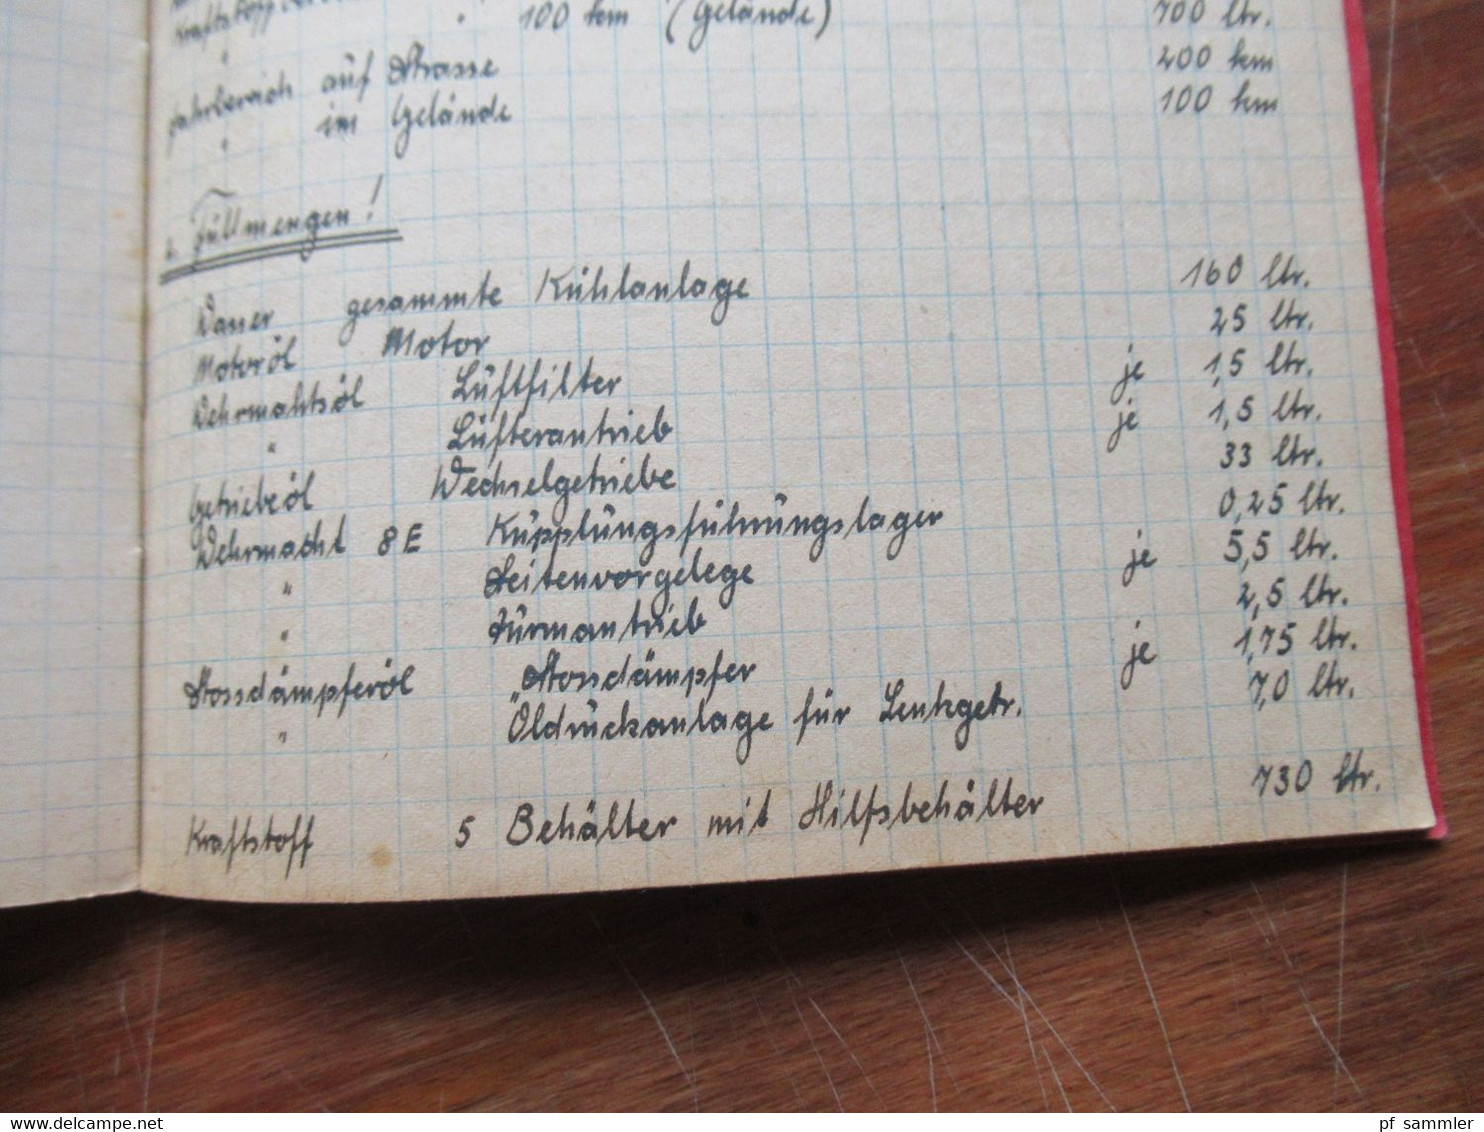 Kraftstoff
" " 100 km (Gelände) 700 ltr.
Fahrbereich auf Strasse 200 km
" im Gelände 100 km
2. Füllmengen!
Wasser gesammte Kühlanlage 160 ltr.
Motoröl Motor 25 ltr.
Wehrmachtsöl Lüftfilter je 1,5 ltr.
" Lüfterantrieb je 1,5 ltr.
Getriebeöl Wechselgetriebe 33 ltr.
Wehrmacht 8 E Kupplungsführungslager 0,25 ltr.
" Seitenvorgelege je 5,5 ltr.
" Türmantrieb 2,5 ltr.
Stossdämpferöl Stossdämpfer je 1,75 ltr.
" Öldrückanlage für Lenkgetr. 7,0 ltr.
Kraftstoff 5 Behälter mit Hilfsbehälter 730 ltr.
www.delcampe.net
pf_sammler